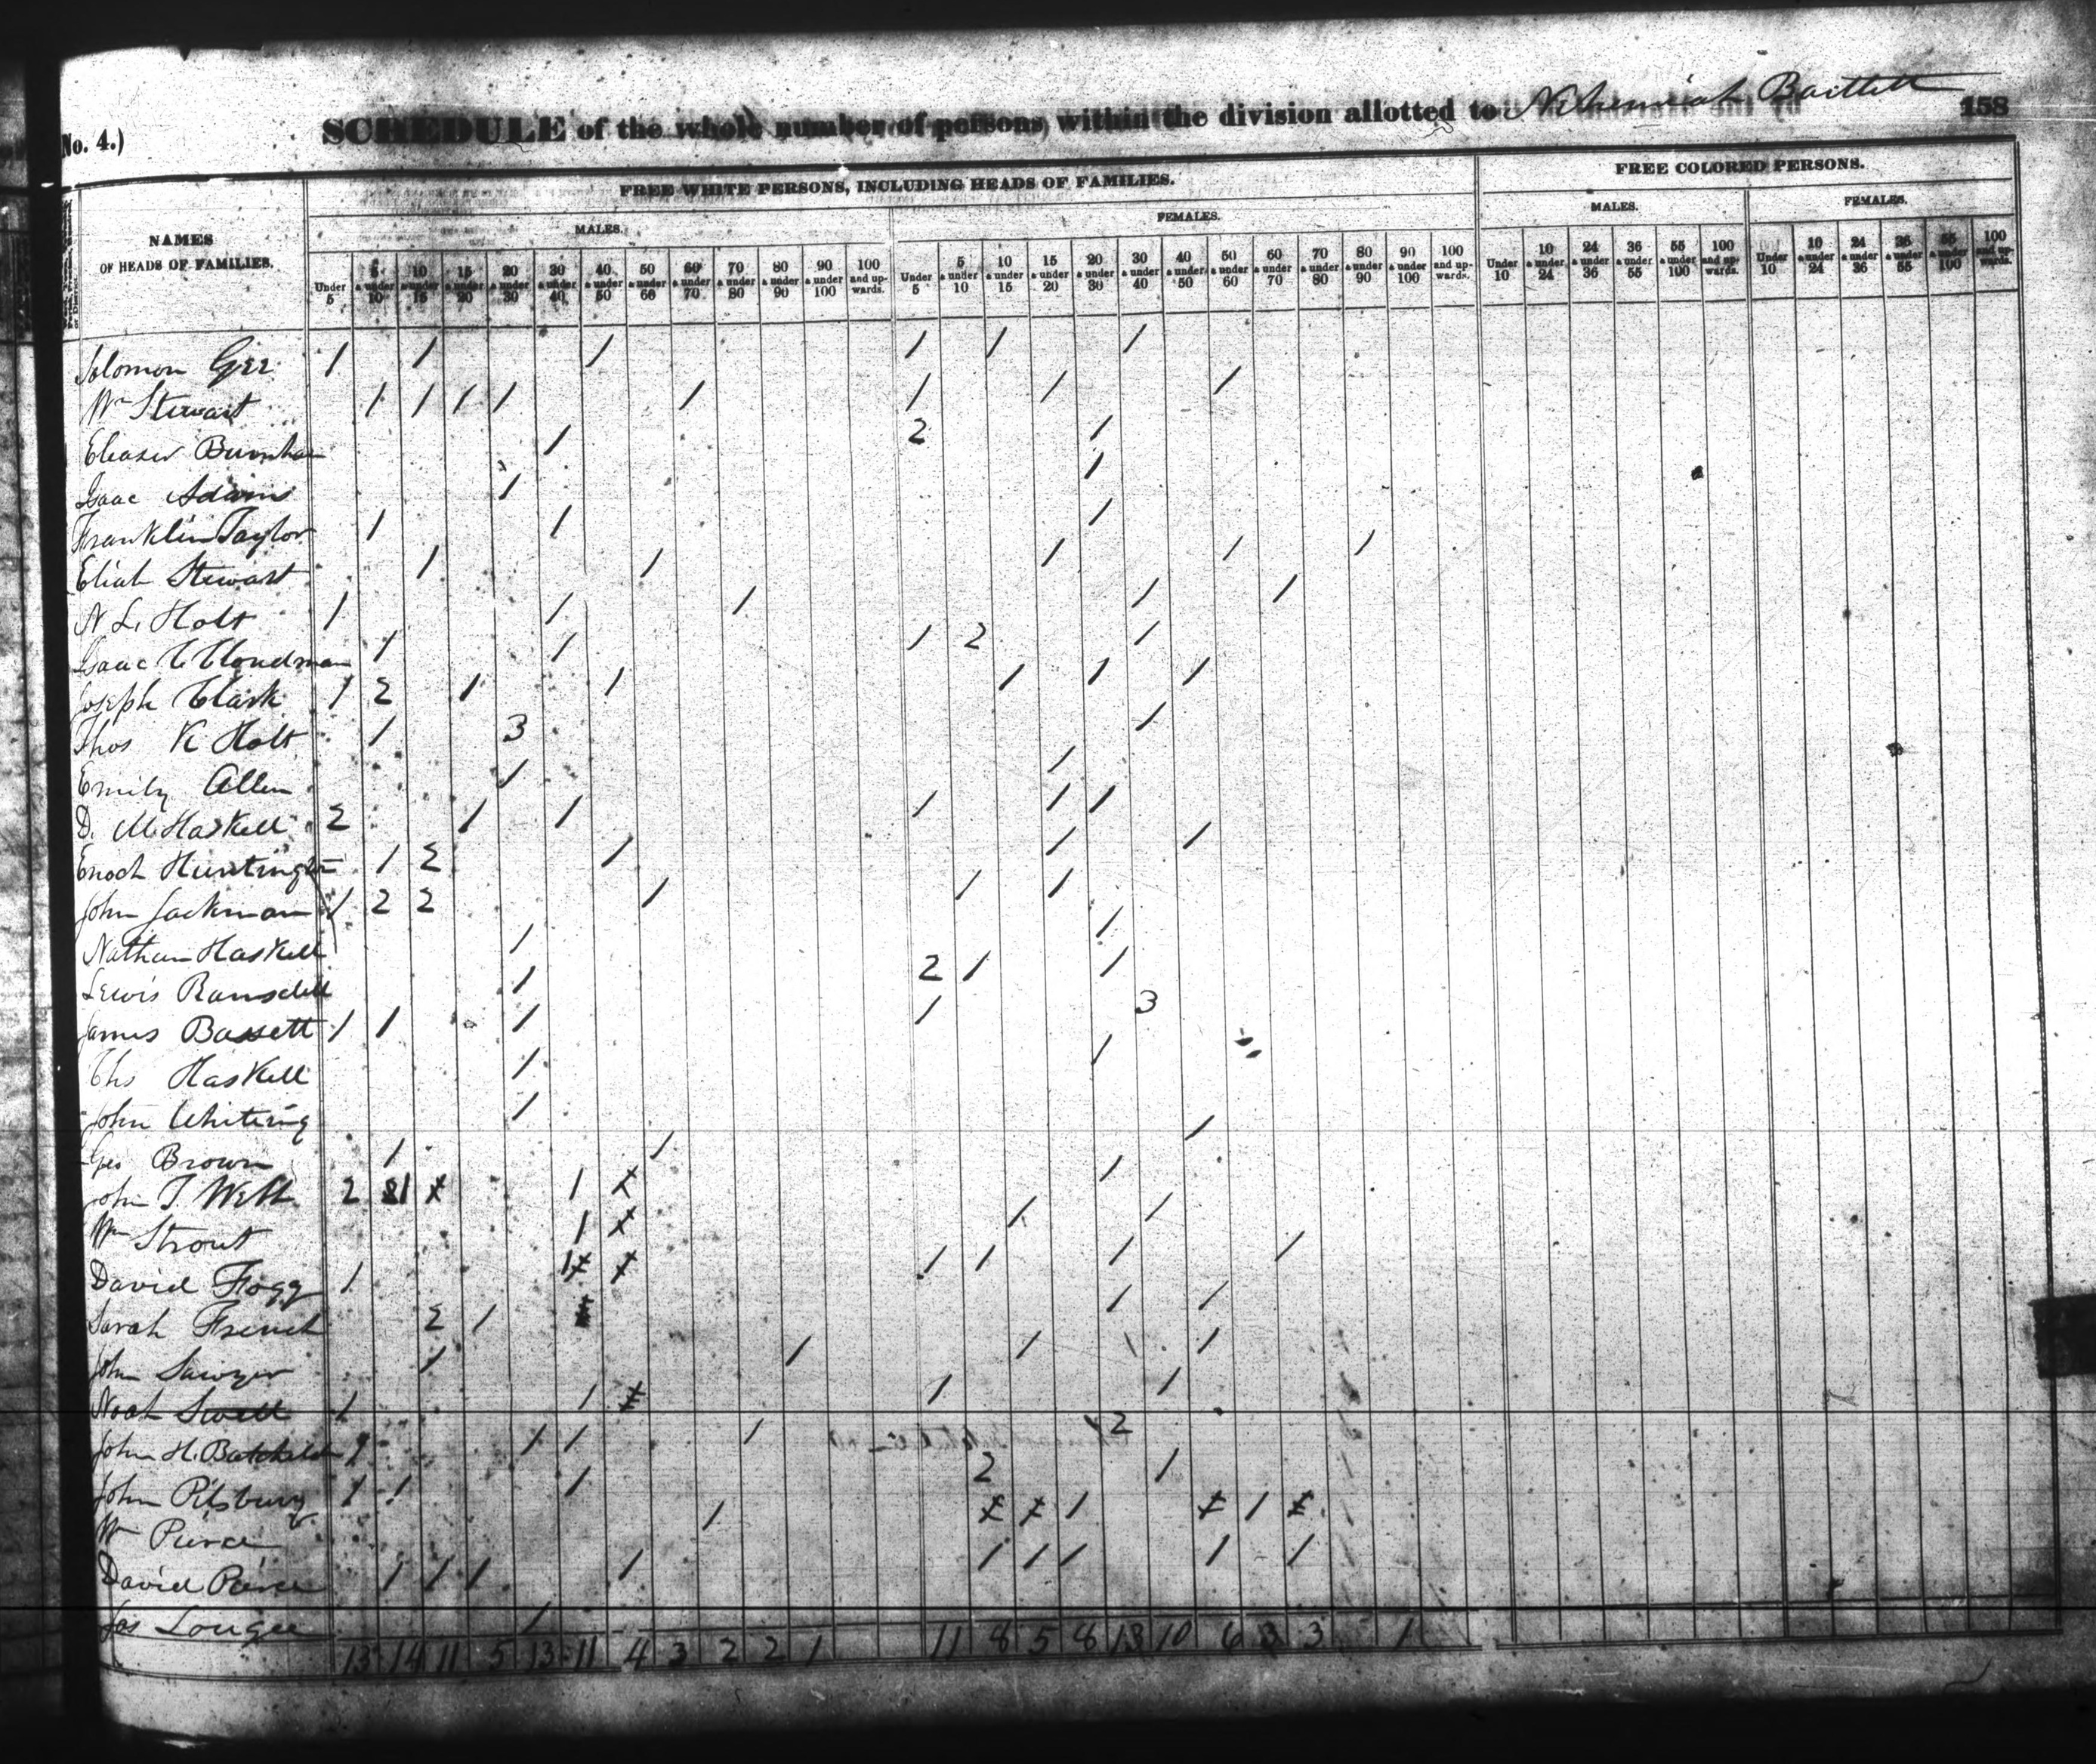 No. 4.)
SCHEDULE of the whole number of persons within the division allotted to Nehemiah Bartlett
158
NAMES OF HEADS OF FAMILIES.
FREE WHITE PERSONS, INCLUDING HEADS OF FAMILIES.
FREE COLORED PERSONS.
MALES. FEMALES. MALES. FEMALES.
Under 5 5 & under 10 10 & under 15 15 & under 20 20 & under 30 30 & under 40 40 & under 50 50 & under 60 60 & under 70 70 & under 80 80 & under 90 90 & under 100 100 and upwards. Under 5 5 & under 10 10 & under 15 15 & under 20 20 & under 30 30 & under 40 40 & under 50 50 & under 60 60 & under 70 70 & under 80 80 & under 90 90 & under 100 100 and upwards. Under 10 10 & under 24 24 & under 36 36 & under 55 55 & under 100 100 and upwards. Under 10 10 & under 24 24 & under 36 36 & under 55 55 & under 100 100 and upwards.
Solomon Gee 1 1 1 1 1 1
Wm Stewart 1 1 1 1 1 1 1 1
Eleaser Burnham 1 2 1
Isaac Adams 1 1
Franklin Taylor 1 1 1
Eliah Stewart 1 1 1 1 1
N L. Holt 1 1 1 1 1
Isaac C Cloudman 1 1 1 2 1
Joseph Clark 1 2 1 1 1 1 1
Thos K Holt 1 3 1
Emily Allen 1 1
D. M. Haskell 2 1 1 1 1 1
Enoch Huntington 1 2 1 1 1
John Jackman 1 2 2 1 1 1
Nathan Haskell 1 1
Lewis Ramsdell 1 2 1 1
James Bassett 1 1 1 1 3
Chs Haskell 1 1
John Whiting 1
Geo Brown 1 1 1
John T. Webb 2 1 1 1
Wm Strout 1 1 1
David Fogg 1 1 1 1 1 1
Sarah French 2 1 1 1
John Sawyer 1 1 1 1
Noah Swett 1 1 1 1
John H. Batchelder 1 1 1 1 2
John Pilsbury 1 1 1 2 1
Wm Pierce 1 1 1
David Pierce 1 1 1 1 1 1 1 1 1
Jos Lougee 1
13 14 11 5 13 11 4 3 2 2 1 11 8 5 8 13 10 6 3 3 1